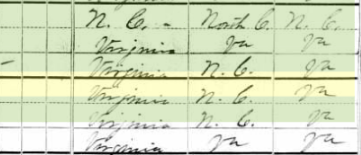 N. C. - North C. N. C.
Virginia Va Va
- Virginia N. C. Va
Virginia N. C. Va
Virginia N. C. Va
Virginia Va Va